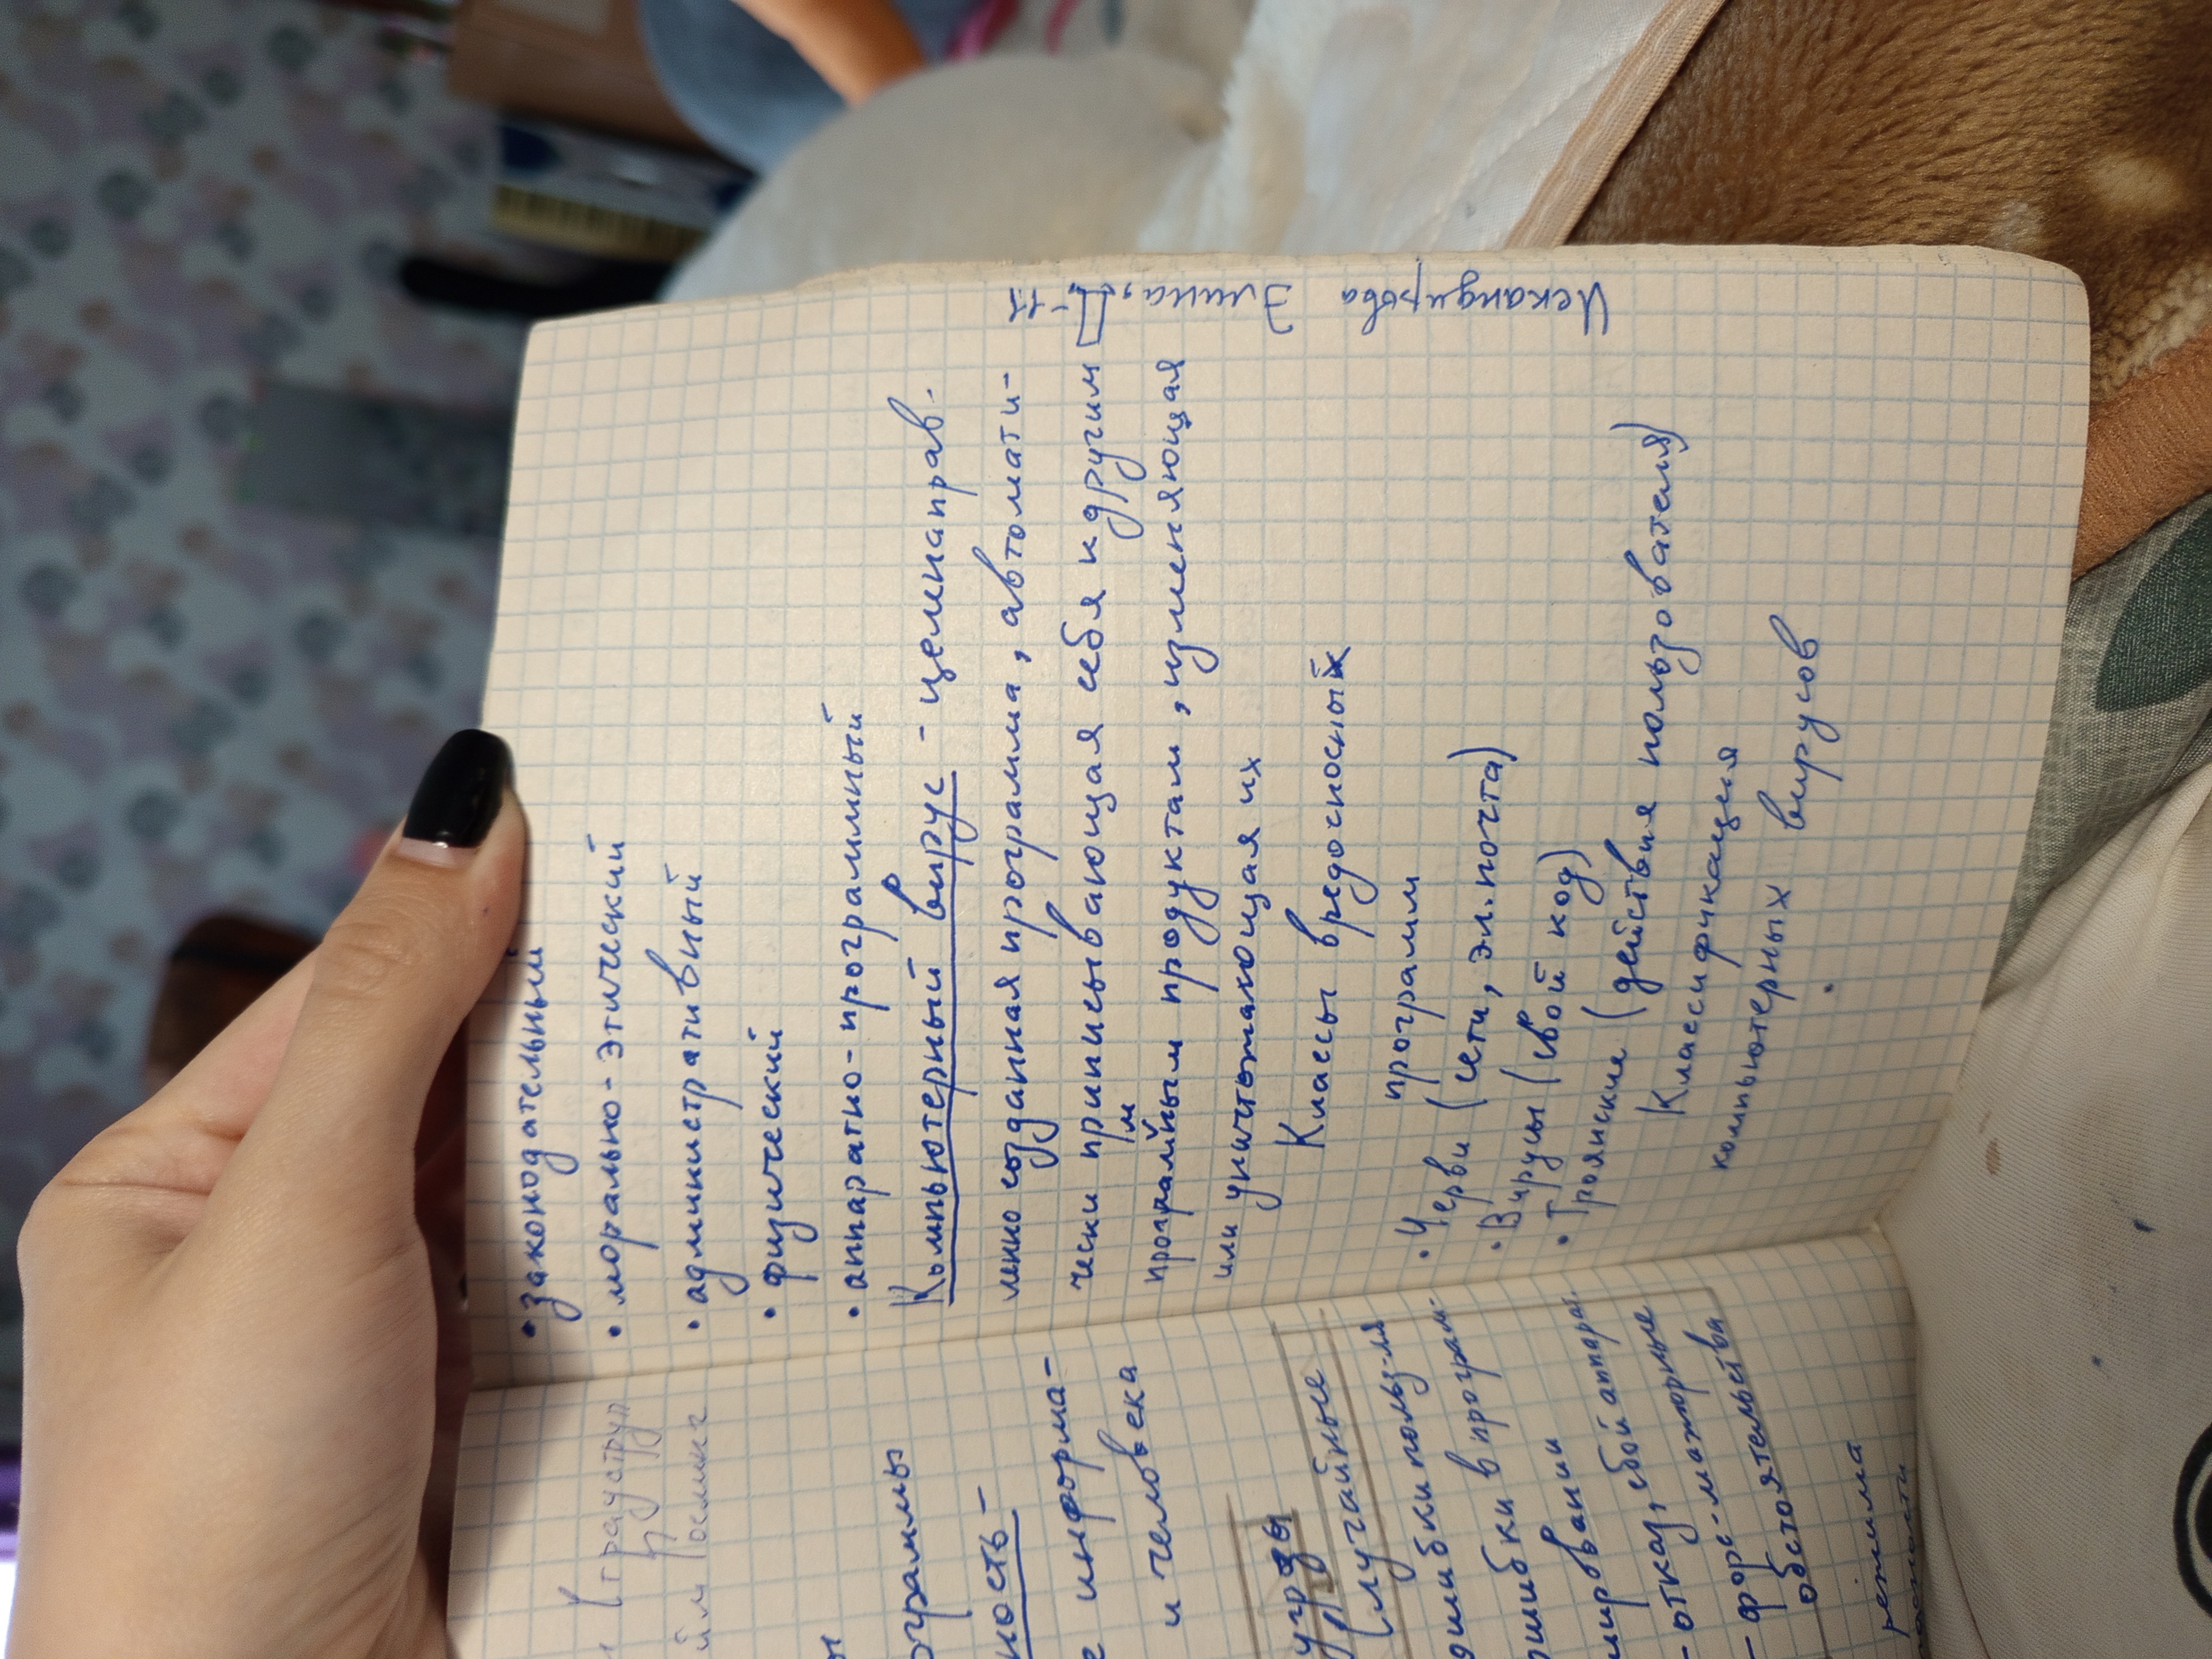 • законодательный
• морально-этический
• административный
• физический
• аппаратно-программный
Компьютерный вирус - целенаправ-
ленно созданная программа, автомати-
чески приписывающая себя к другим
программным продуктам, изменяющая
или уничтожающая их
Классы вредоносных
программ
• Черви (сети, эл. почта)
• Вирусы (свой код)
• Троянские (действия пользователя)
Классификация
компьютерных вирусов
•
Искандирова Элина,
ограммы
ность -
е информа-
и человека
угрозы
случайные
ошибки польз-ля
ошибки в програм-
мировании
- отказ, сбой аппарат.
- форс-мажорные
обстоятельства
режима